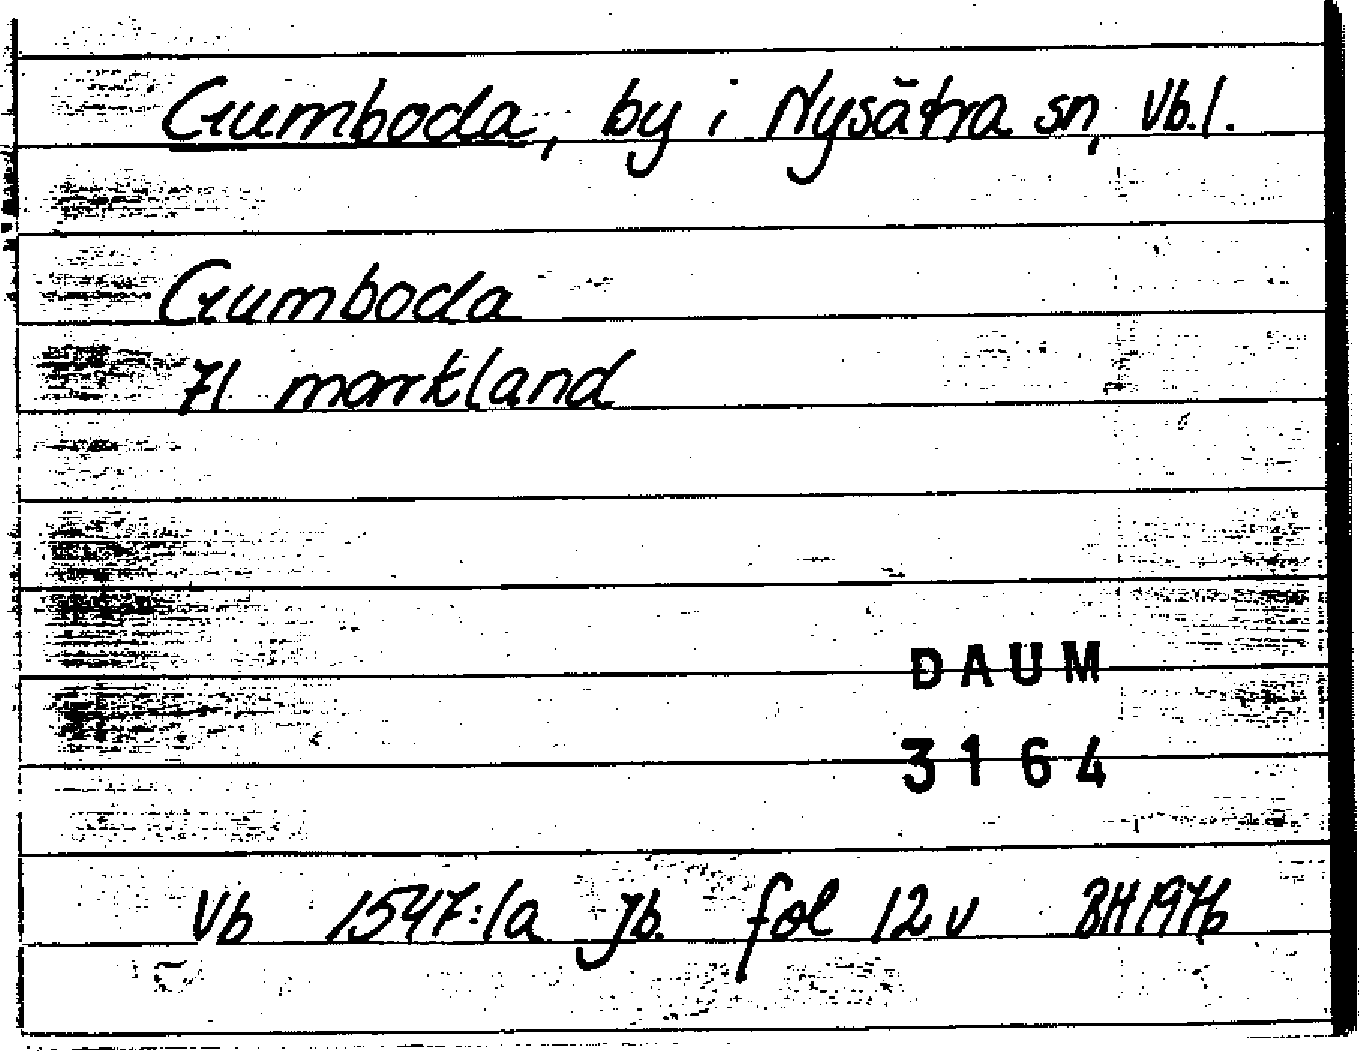 Gumboda, by i Nysätra sn, Vb.l.
Gumboda
71 markland
DAUM
3164
Vb 1547:1a Jb. fol 12 v BH 1976